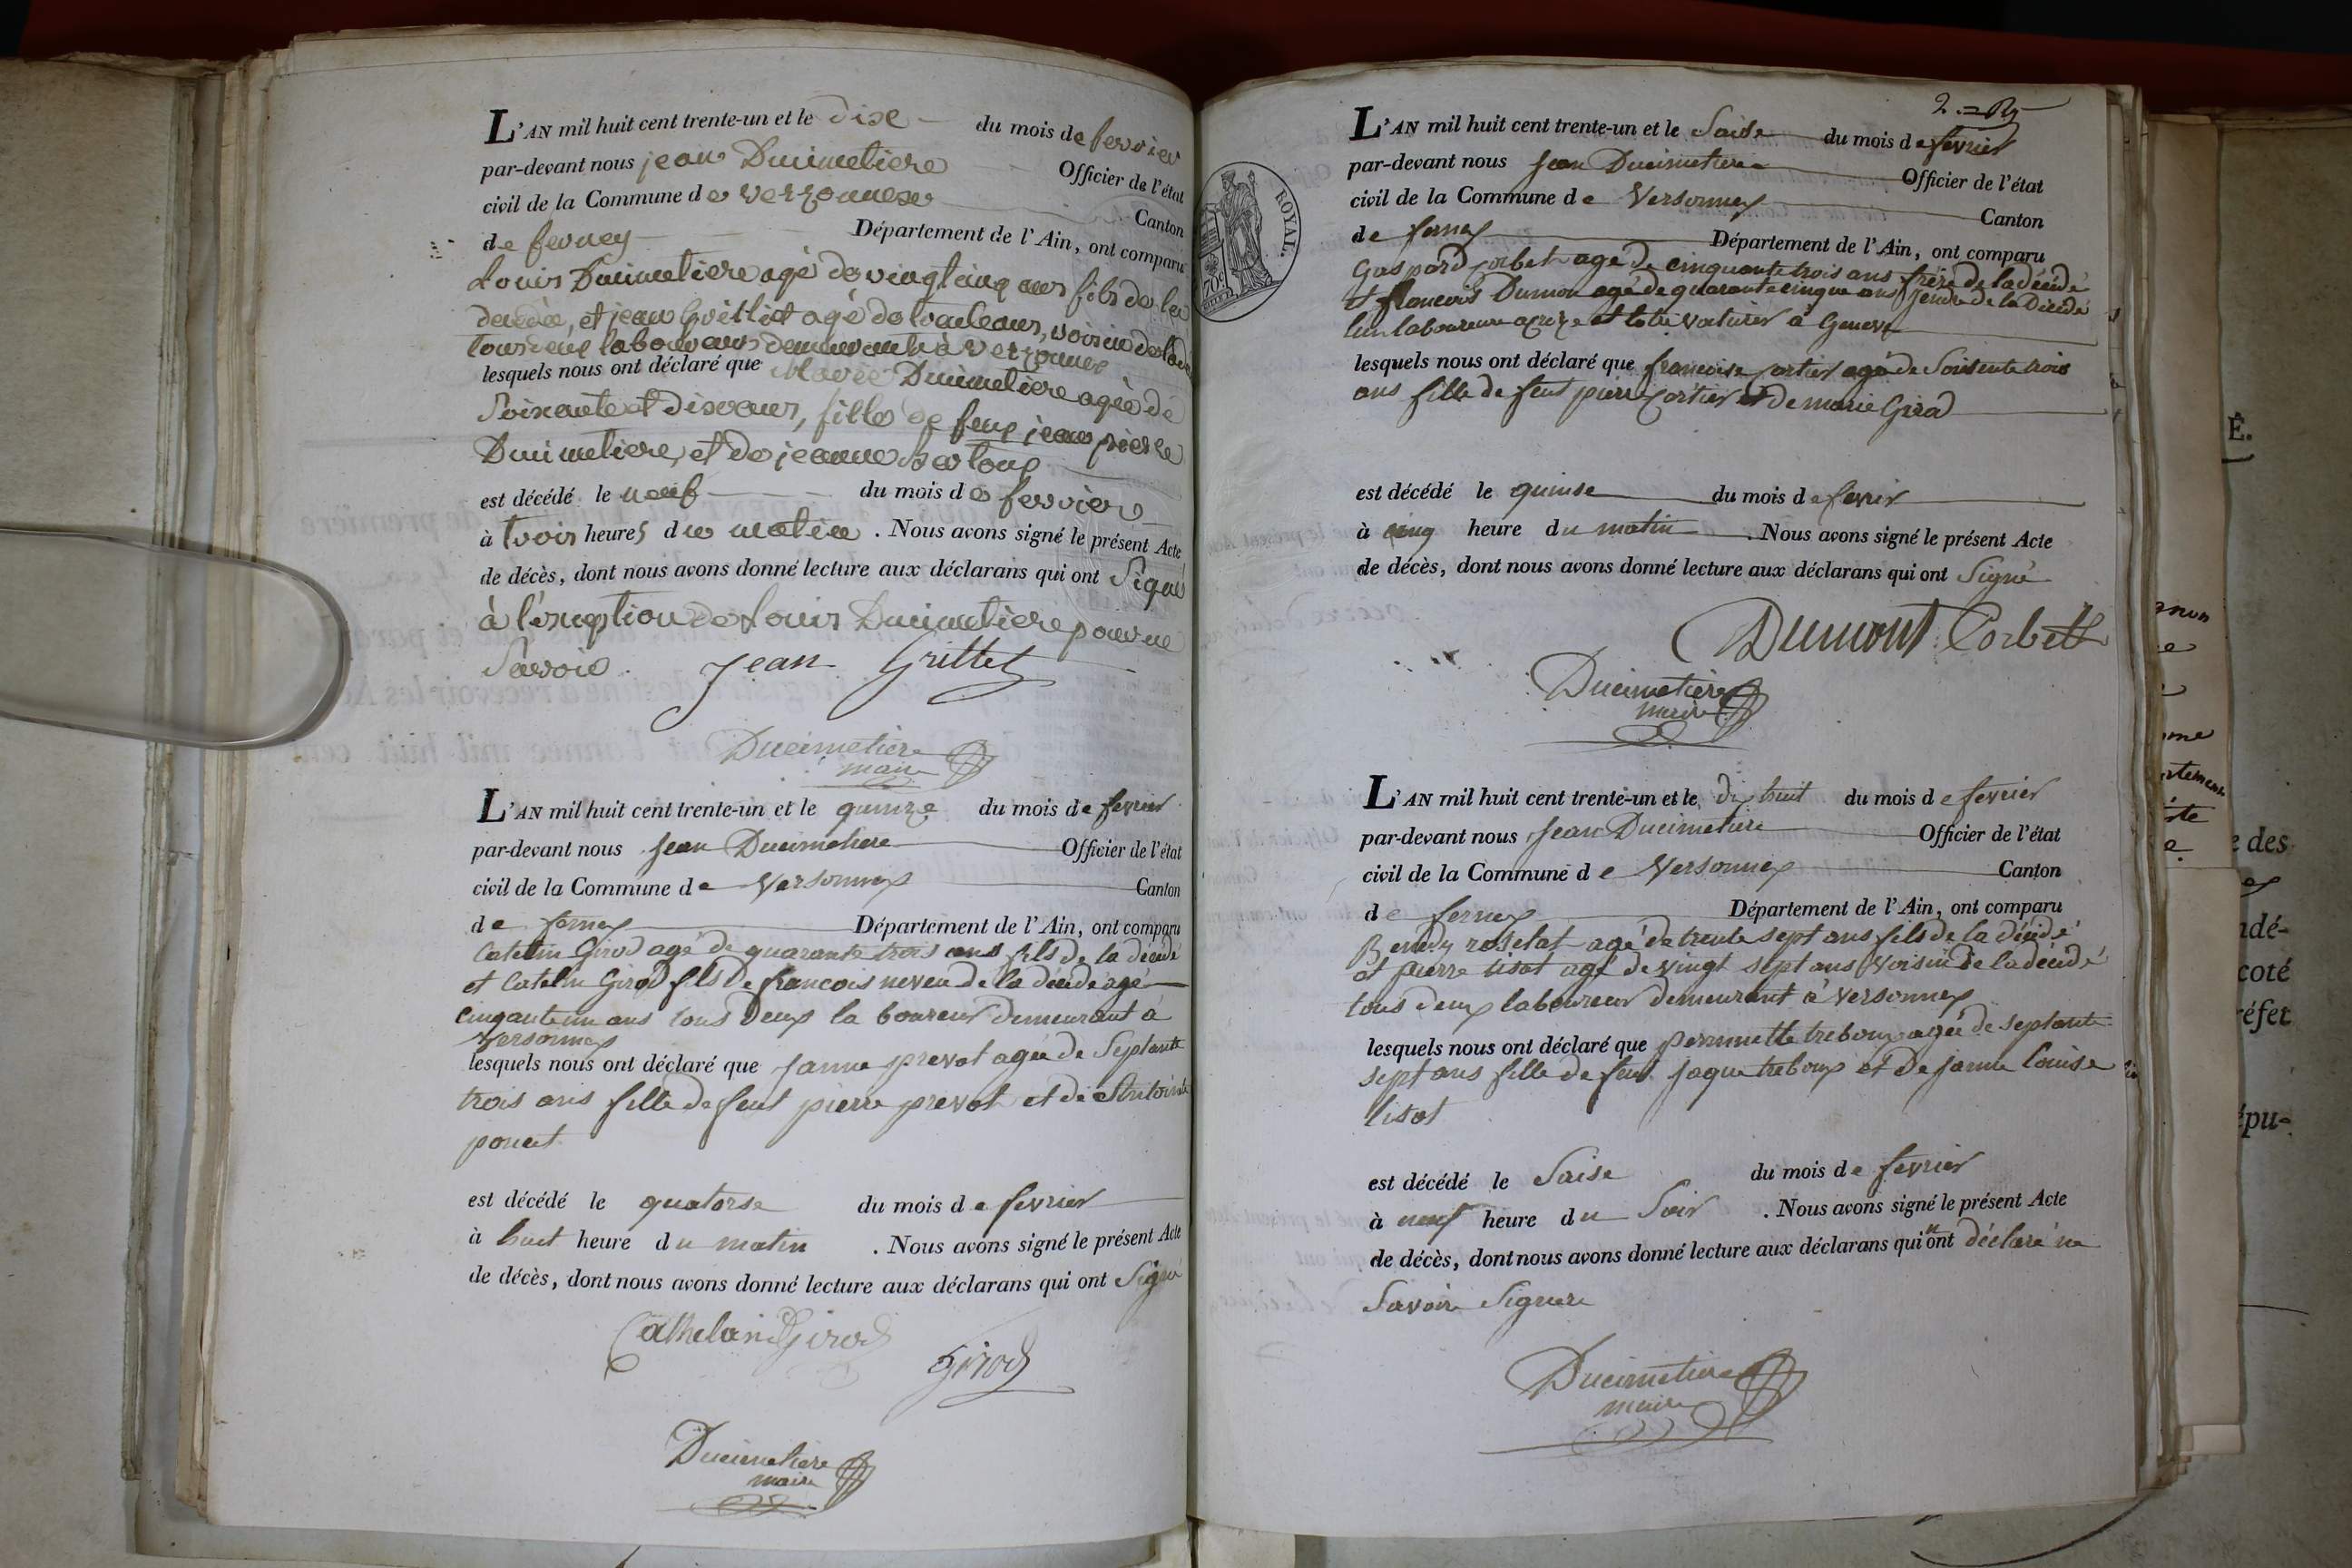 L'AN mil huit cent trente-un et le dixe du mois de fevrier
par-devant nous jean Ducimetiere Officier de l'état
civil de la Commune de verzonnex Canton
de ferney Département de l'Ain, ont comparu
Louis Ducimetiere agé de vingt cinq ans fils de la
decedée, et jean Grillet agé de ans, voisin de la
tous deux laboureurs demeurant à verzonnex
lesquels nous ont déclaré que Marie Ducimetière agée de
Soixante et dix ans, fille de feux jean pierre
Ducimetiere, et de jeanne
est décédé le neuf du mois de fevrier
à trois heures du matin . Nous avons signé le présent Acte
de décès, dont nous avons donné lecture aux déclarans qui ont Signé
à l'éxception de Louis Ducimetière pour ne
Savoir. Jean Grillet
Ducimetiere
maire
L'AN mil huit cent trente-un et le quinze du mois de fevrier
par-devant nous Jean Ducimetiere Officier de l'état
civil de la Commune de Versonnex Canton
de fernex Département de l'Ain, ont comparu
Catelin Girod agé de quarante trois ans fils de la décédé
et Catelin Girod fils de francois neveu de la décédé agé
cinquante un ans tous deux la boureur Demeurant à
Versonnex
lesquels nous ont déclaré que Janne prevot agée de Septante
trois ans fille de feut pierre prevot et de Antoinette
poncet
est décédé le quatorse du mois de fevrier
à huit heure du matin . Nous avons signé le présent Acte
de décès, dont nous avons donné lecture aux déclarans qui ont Signé
Cathelan Girod
Girod
Ducimetiere
maire
ROYAL.
70c.
L'AN mil huit cent trente-un et le Saise du mois de fevrier
par-devant nous Jean Ducimetiere Officier de l'état
civil de la Commune de Versonnex Canton
de fernex Département de l'Ain, ont comparu
Gaspard Corbet agé de cinquante trois ans frère de la décédé
et francois Dumon agé de quarante cinque ans jendre de la Décédé
lun laboureure et lotre voiturier à Geneve
lesquels nous ont déclaré que francoise Cortier agé de Soisente trois
ans fille de feut pierre Cortier et de marie Girad
est décédé le quinse du mois de fevrir
à cinq heure du matin . Nous avons signé le présent Acte
de décès, dont nous avons donné lecture aux déclarans qui ont Signé
Dumont Corbett
Ducimetière
maire
L'AN mil huit cent trente-un et le dix huit du mois de fevrier
par-devant nous Jean Ducimetiere Officier de l'état
civil de la Commune de Versonnex Canton
de fernex Département de l'Ain, ont comparu
roselat agé de trente sept ans fils de la décédé
et pierre lisot agé de vingt sept ans Voisin de la décédé
tous deux laboureur demeurant à Versonnex
lesquels nous ont déclaré que perenette treboux agée de septante
sept ans fille de feut jaque treboux et De janne louise
lisot
est décédé le Saise du mois de fevrier
à neuf heure du Soir . Nous avons signé le présent Acte
de décès, dont nous avons donné lecture aux déclarans qui ont déclaré ne
Savoir Signere
Ducimetiere
maire
É.
e des
ndé-
coté
réfet
épu-